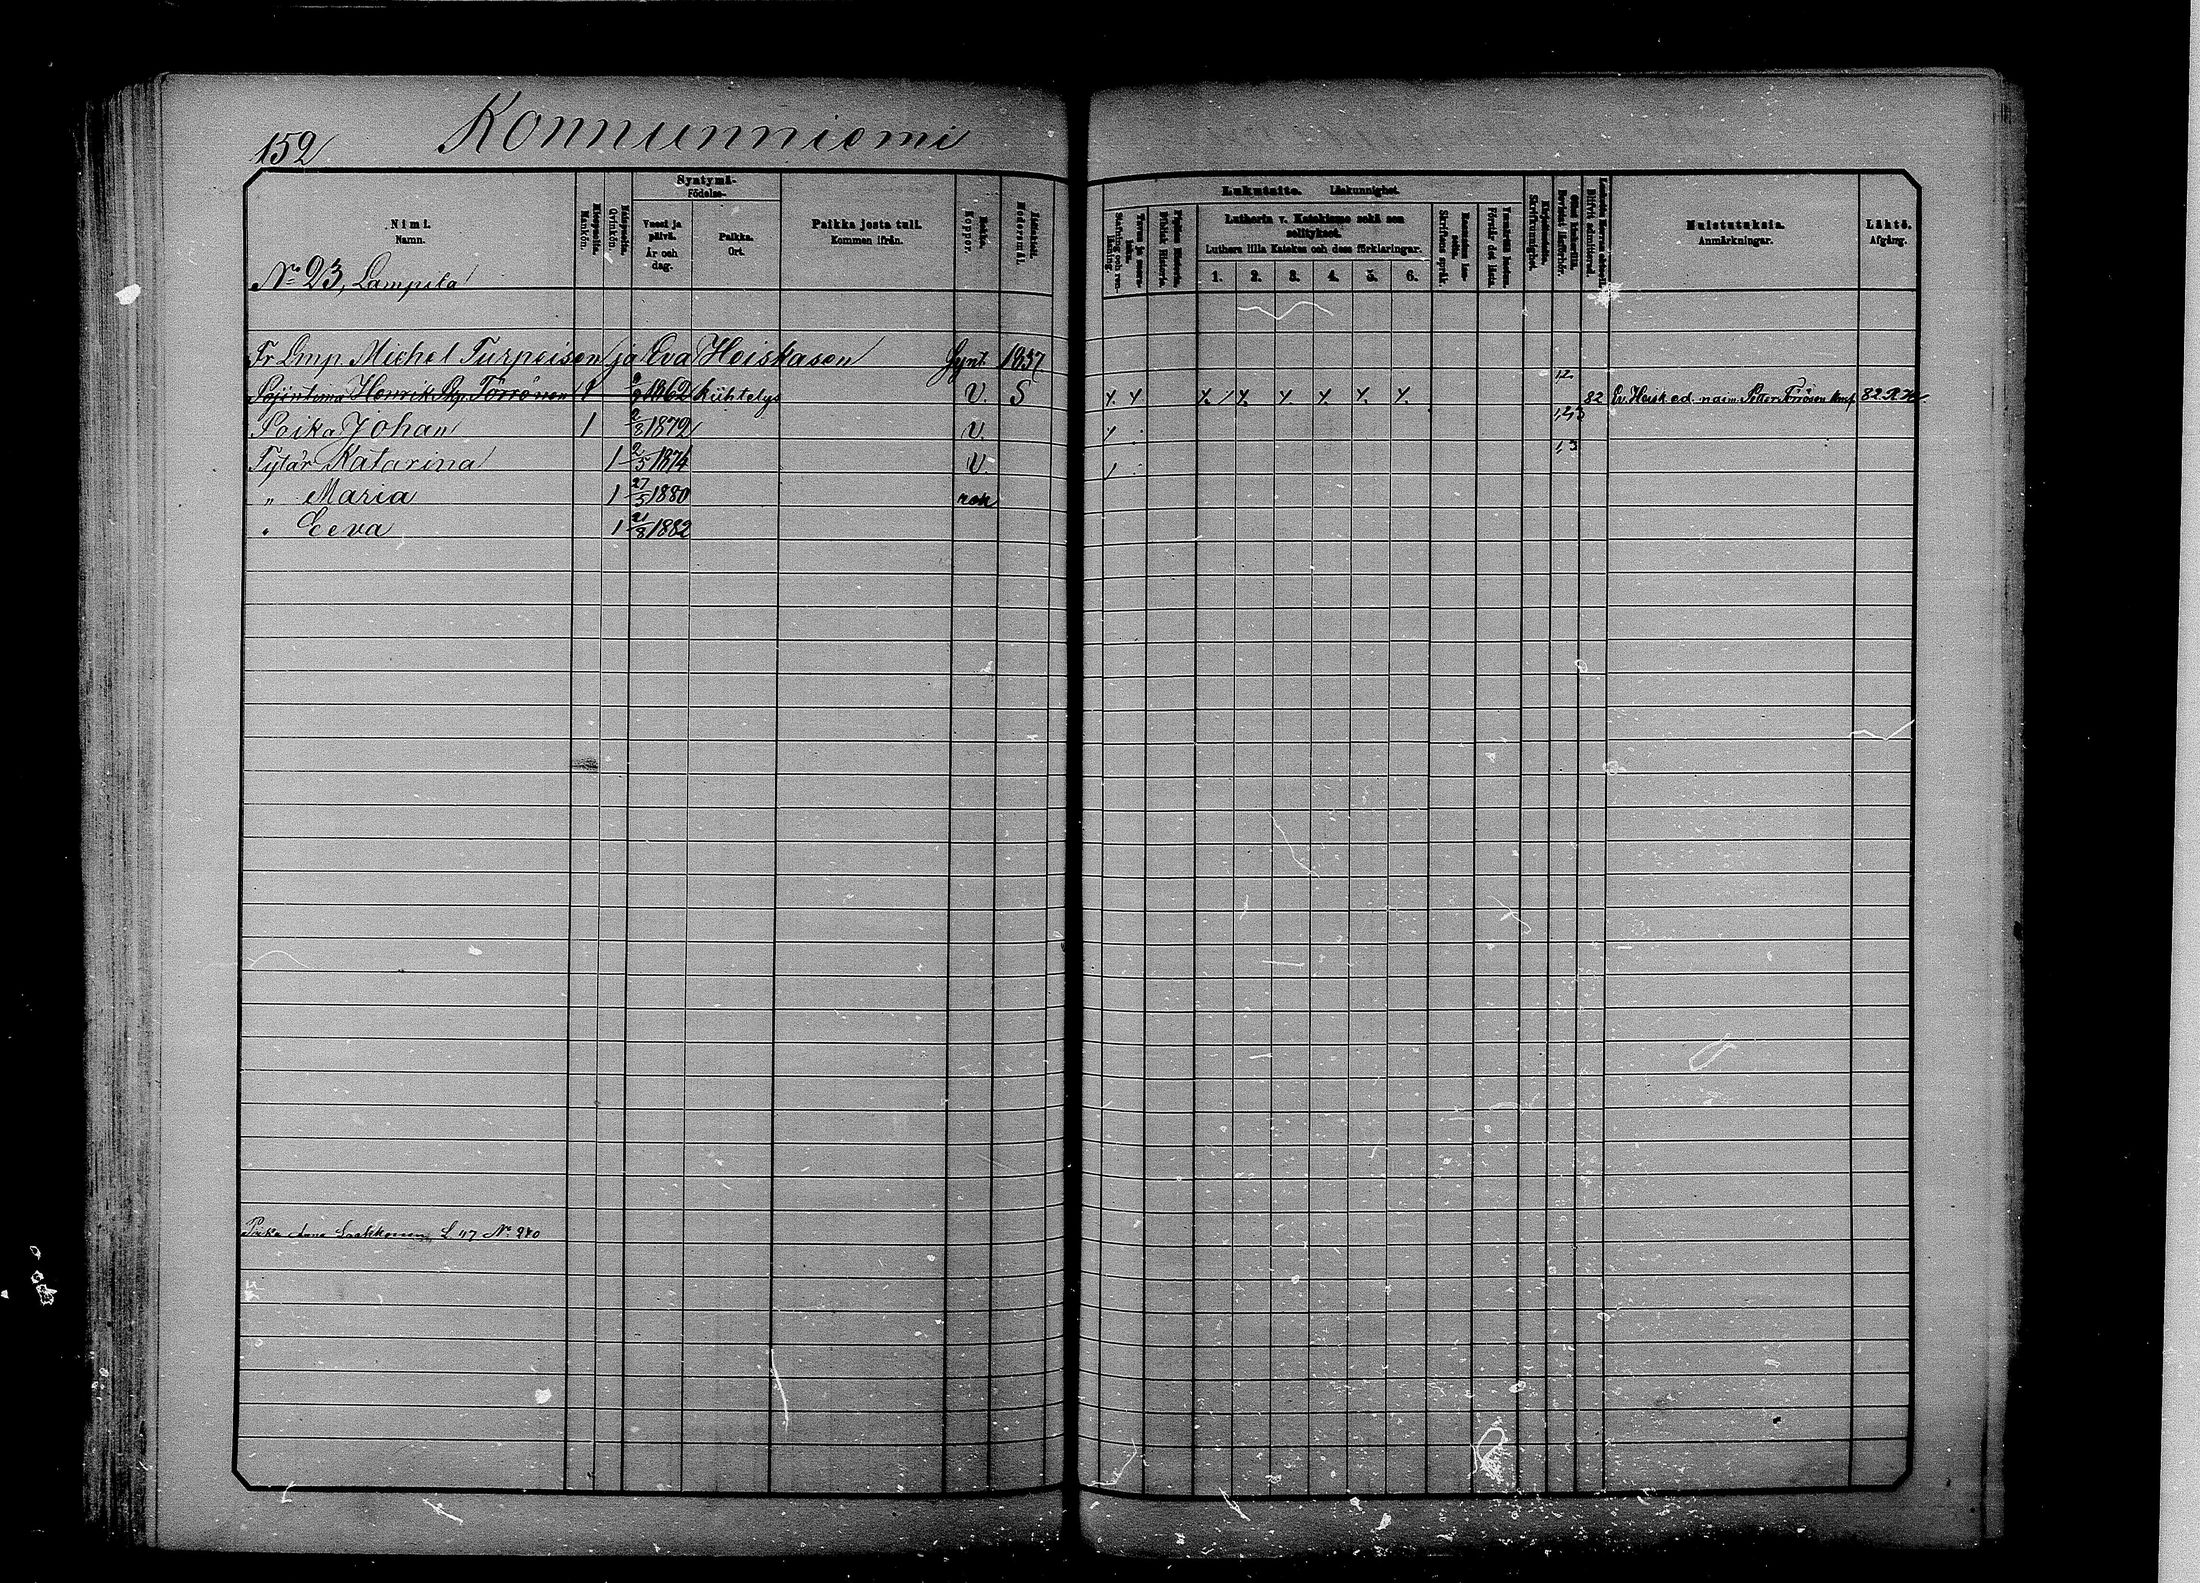 152 Konnunniemi
Syntymä-
Födelse-
Nimi.
Namn.
Miespuolia.
Mankön.
Naispuolia.
Qvinkön.
Vuosi ja päivä.
År och dag.
Paikka.
Ort.
Paikka josta tuli.
Kommen ifrån.
Rokko.
Koppor.
Modersmål.
Lukutaito. Läskunnighet.
Stafning och ren läsning.
Biblisk Historia.
Lutherin v. Katekismo sekä sen selitykset.
Luthers lilla Katekes och dess förklaringar.
1. 2. 3. 4. 5. 6.
Skriftens språk.
Förstår det lästa.
Skrifkunnighet.
Muistutuksia.
Anmärkningar.
Lähtö.
Afgång.
No 23, Lampila
Tr Lmp. Michel Turpeisen ja Eva Heiskasen Synt. 1857
Henrik Törrönen 1 1862 Kiihtelys V. S 12 82 Ev. Heisk ed. naim. Petter Törrösen 82 R.
Poika Johan 1 2/8 1872 V. 1,2,3
Tytär Katarina 1 2/5 1874 V. 1,3
" Maria 1 27/5 1880 rok
" Eeva 1 21/8 1882
Anna L 47 No 240